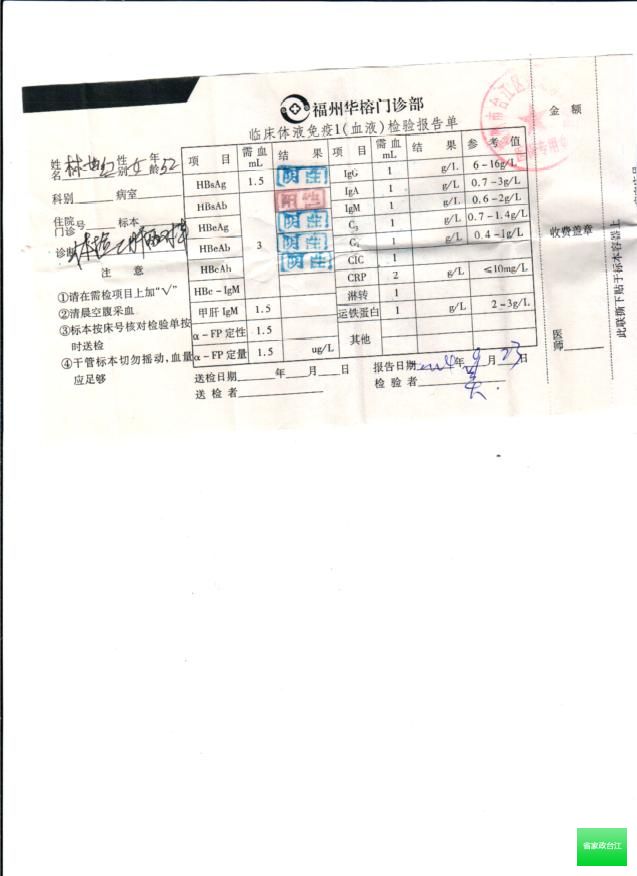 福州华榕门诊部
临床体液免疫1(血液)检验报告单
姓名 林 红 性别 女 年龄 52
科别 病室
住院门诊号 标本
诊断
注 意
①请在需检项目上加“√”
②清晨空腹采血
③标本按床号核对检验单按时送检
④干管标本切勿摇动,血量应足够
项 目 需血mL 结 果 项 目 需血mL 结 果 参 考 值
HBsAg 1.5 阴性 IgG 1 g/L 6-16g/L
HBsAb 阳性 IgA 1 g/L 0.7-3g/L
HBeAg 3 阴性 IgM 1 g/L 0.6-2g/L
HBeAb 阴性 C₃ 1 g/L 0.7-1.4g/L
HBcAb 阴性 C₄ 1 g/L 0.4-1g/L
CIC 1
HBc-IgM CRP 2 g/L ≤10mg/L
甲肝 IgM 1.5 淋转 1
α-FP 定性 1.5 运铁蛋白 1 g/L 2-3g/L
α-FP 定量 1.5 ug/L 其他
送检日期 年 月 日 报告日期 年 9 月 23 日
送 检 者 检 验 者
金 额
收费盖章
医师
此联撕下贴于标本容器上
省家政台江